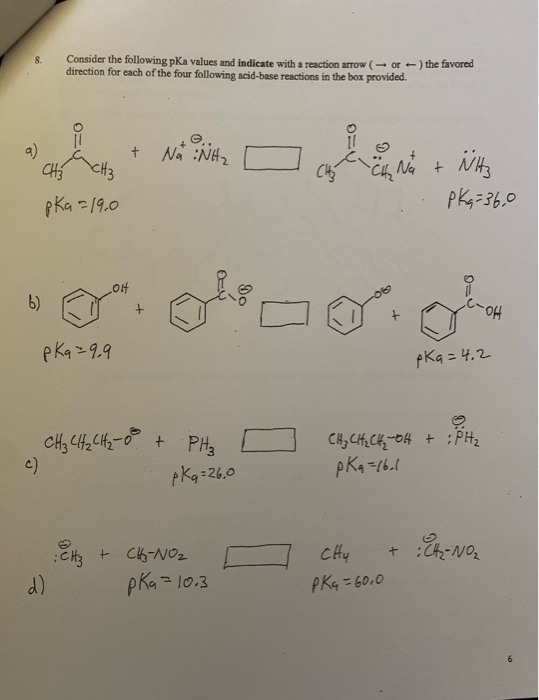 8. Consider the following pKa values and indicate with a reaction arrow (→ or ←) the favored
direction for each of the four following acid-base reactions in the box provided.
a)
O
CH3 C CH3 + Na+ ⊖:NH2
O
CH3 C ⊖CH2 Na+ + NH3
pKa = 19.0
pKa = 36.0
b)
OH + O C O⊖
O⊖ + O C-OH
pKa = 9.9
pKa = 4.2
c)
CH3CH2CH2-O⊖ + PH3
CH3CH2CH2-OH + ⊖:PH2
pKa = 26.0
pKa = 16.1
d)
⊖:CH3 + CH3-NO2
CH4 + ⊖:CH2-NO2
pKa = 10.3
pKa = 60.0
6